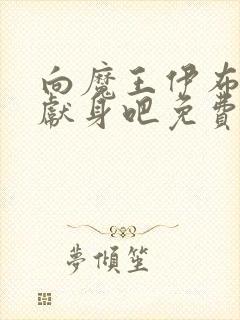 向魔王伊布
献身吧免费
夢傾笙